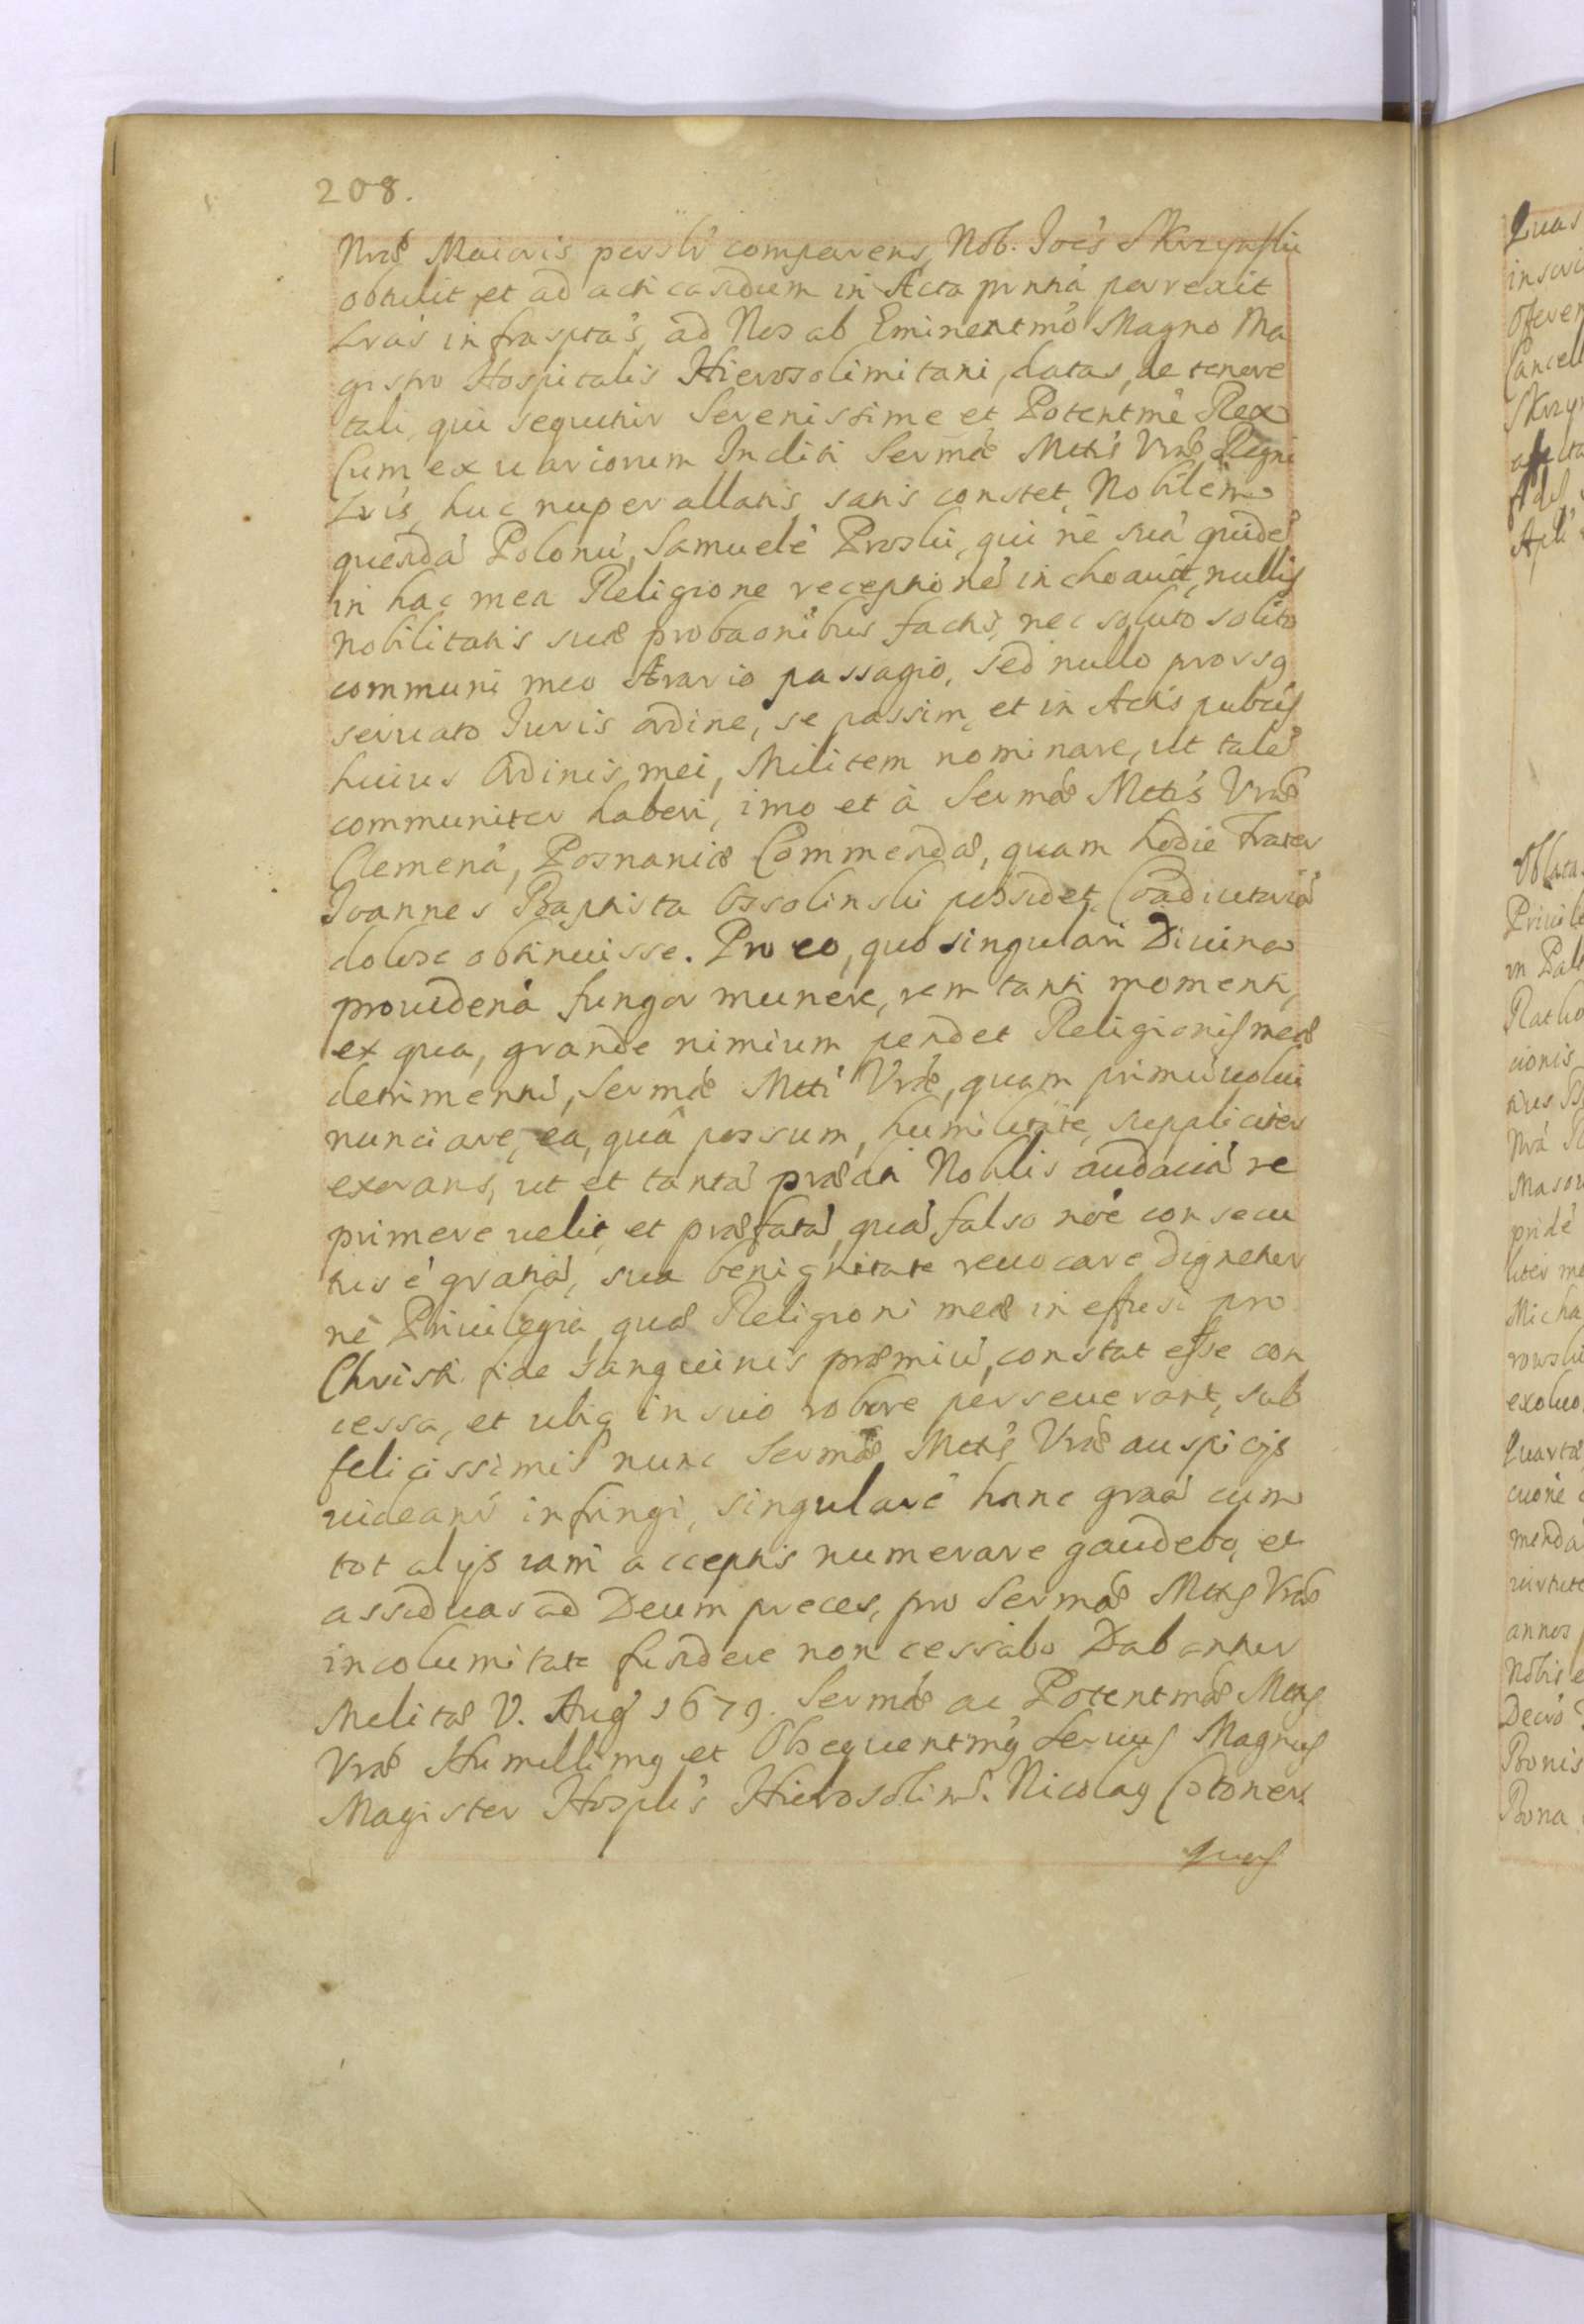 208.
Nræ Maioris persľr comparens, Nob. Joes Skrzynski
obtulit et ad acticandum in Acta pnntia porrexit
Lras infrasptas, ad Nos ab Eminentmo Magno Ma
gistro Hospitalis Hierosolimitani, datas, de tenore
tali, qui sequitur Serenissime et Potentme Rex
Cum ex uariorum Incliti Sermæ Mttis Vræ Regni
Lris, huc nuper allatis, satis constet, Nobilem
quendā Polonū, Samuelē Proski, qui nē suā quidē
in hac mea Religione receptionē inchoauit, nullis
nobilitatis suæ probaonibus factis, nec soluto solito
communi meo Ærario passagio, sed nullo prorsq
seruato Iuris ordine, se passim, et in Actis publis
huius Ordinis mei, Militem nominare, ut talē
communiter haberi, imo et à Sermæ Mttis Vræ
Clemená, Posnaniæ Commendæ, quam hodie Frater
Joannes Baptista Ossolinski possidet, Coadiutoriā
dolose obtinuisse. Pro eo, quo singulari Diuina
prouidená fungor munere, rem tanti momenti,
ex qua, grande nimium pendet Religionis meæ
detrimentū, Sermæ Mtti Vræ, quam primū uolui
nunciare, ea, quâ possum, humilitate, suppliciter
exorans, ut et tantā prædti Nobilis audaciā re
primere uelit, et præfatā, quā falso noē consecu
tus ē gratiā, sua benignitate reuocare dignetur
nē Priuilegia, quæ Religioni meæ in effusi pro
Christi fide sanguinis præmiū, constat esse con
cessa, et ubiq in suo robore perseuerant, sub
felicissimis nunc Sermæ Mttis Vræ auspicijs
uideant infringi, singularē hanc graā cum
tot alijs iam acceptis numerare gaudebo, et
assiduas ad Deum preces, pro Sermæ Mttis Vræ
incolumitate fundere non cessabo Dabantur
Melitæ V. Aug 1679. Sermæ ac Potentmæ Mttis
Vræ Humillimq et Obsequentmq Seruus Magnus
Magister Hosplis Hierosolim. Nicolaq Cotoner.
Quas